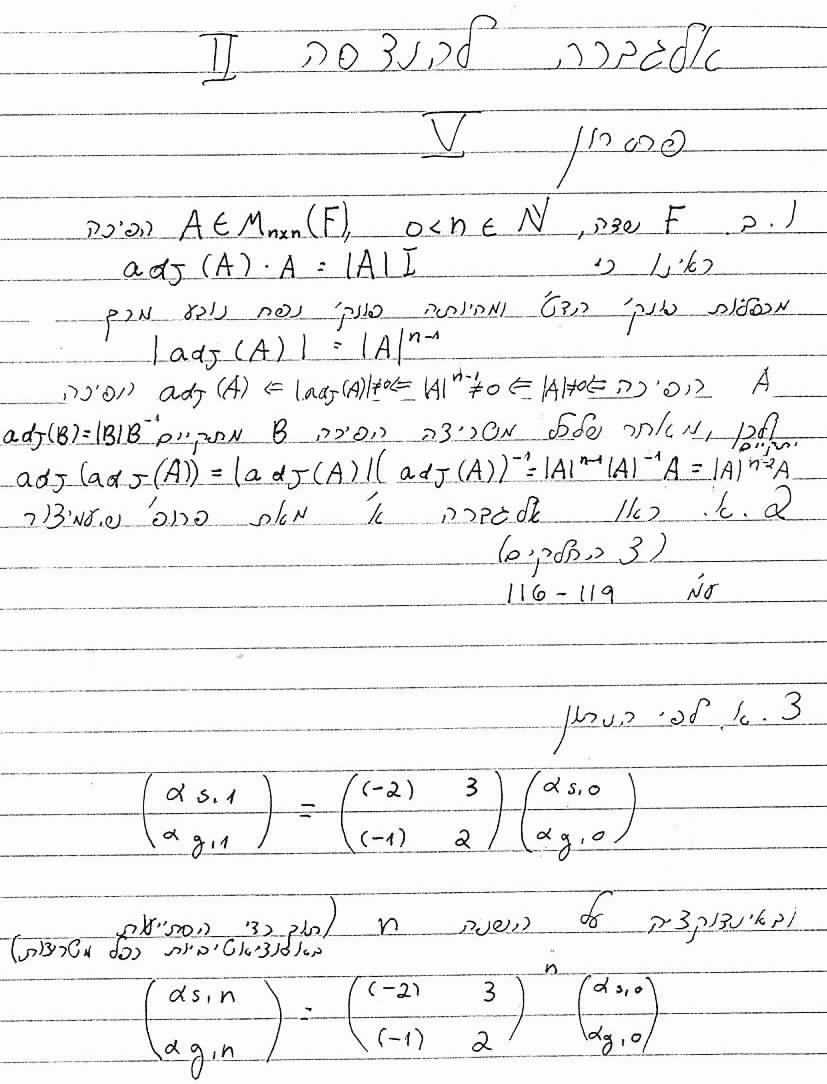 אלגברה להנדסה II
פתרון V
1. ב. F שדה, 0<n∈ℕ, A∈M_{n×n}(F) הפיכה
ראינו כי adj(A)·A = |A|I
מכפליות פונק' הדט' ומהיותה פונק' נפח נובע מכך
|adj(A)| = |A|^{n-1}
A הפיכה ⇐ |A|≠0 ⇐ |A|^{n-1}≠0 ⇐ |adj(A)|≠0 ⇐ adj(A) הפיכה
ולכן, מאחר שלכל מטריצה הפיכה B מתקיים adj(B)=|B|B^{-1} יתקיים
adj(adj(A)) = |adj(A)|(adj(A))^{-1} = |A|^{n-1}|A|^{-1}A = |A|^{n-2}A
2. א. ראו אלגברה א' מאת פרופ' ש. עמיצור
(3 החלקים)
עמ' 116-119
3. א. לפי הנתון
(αs,1 / αg,1) = ((-2) 3 / (-1) 2) (αs,0 / αg,0)
ובאינדוקציה על השנה n (תוך כדי הסתייעות
באסוציאטיביות כפל מטריצות)
(αs,n / αg,n) = ((-2) 3 / (-1) 2)^n (αs,0 / αg,0)